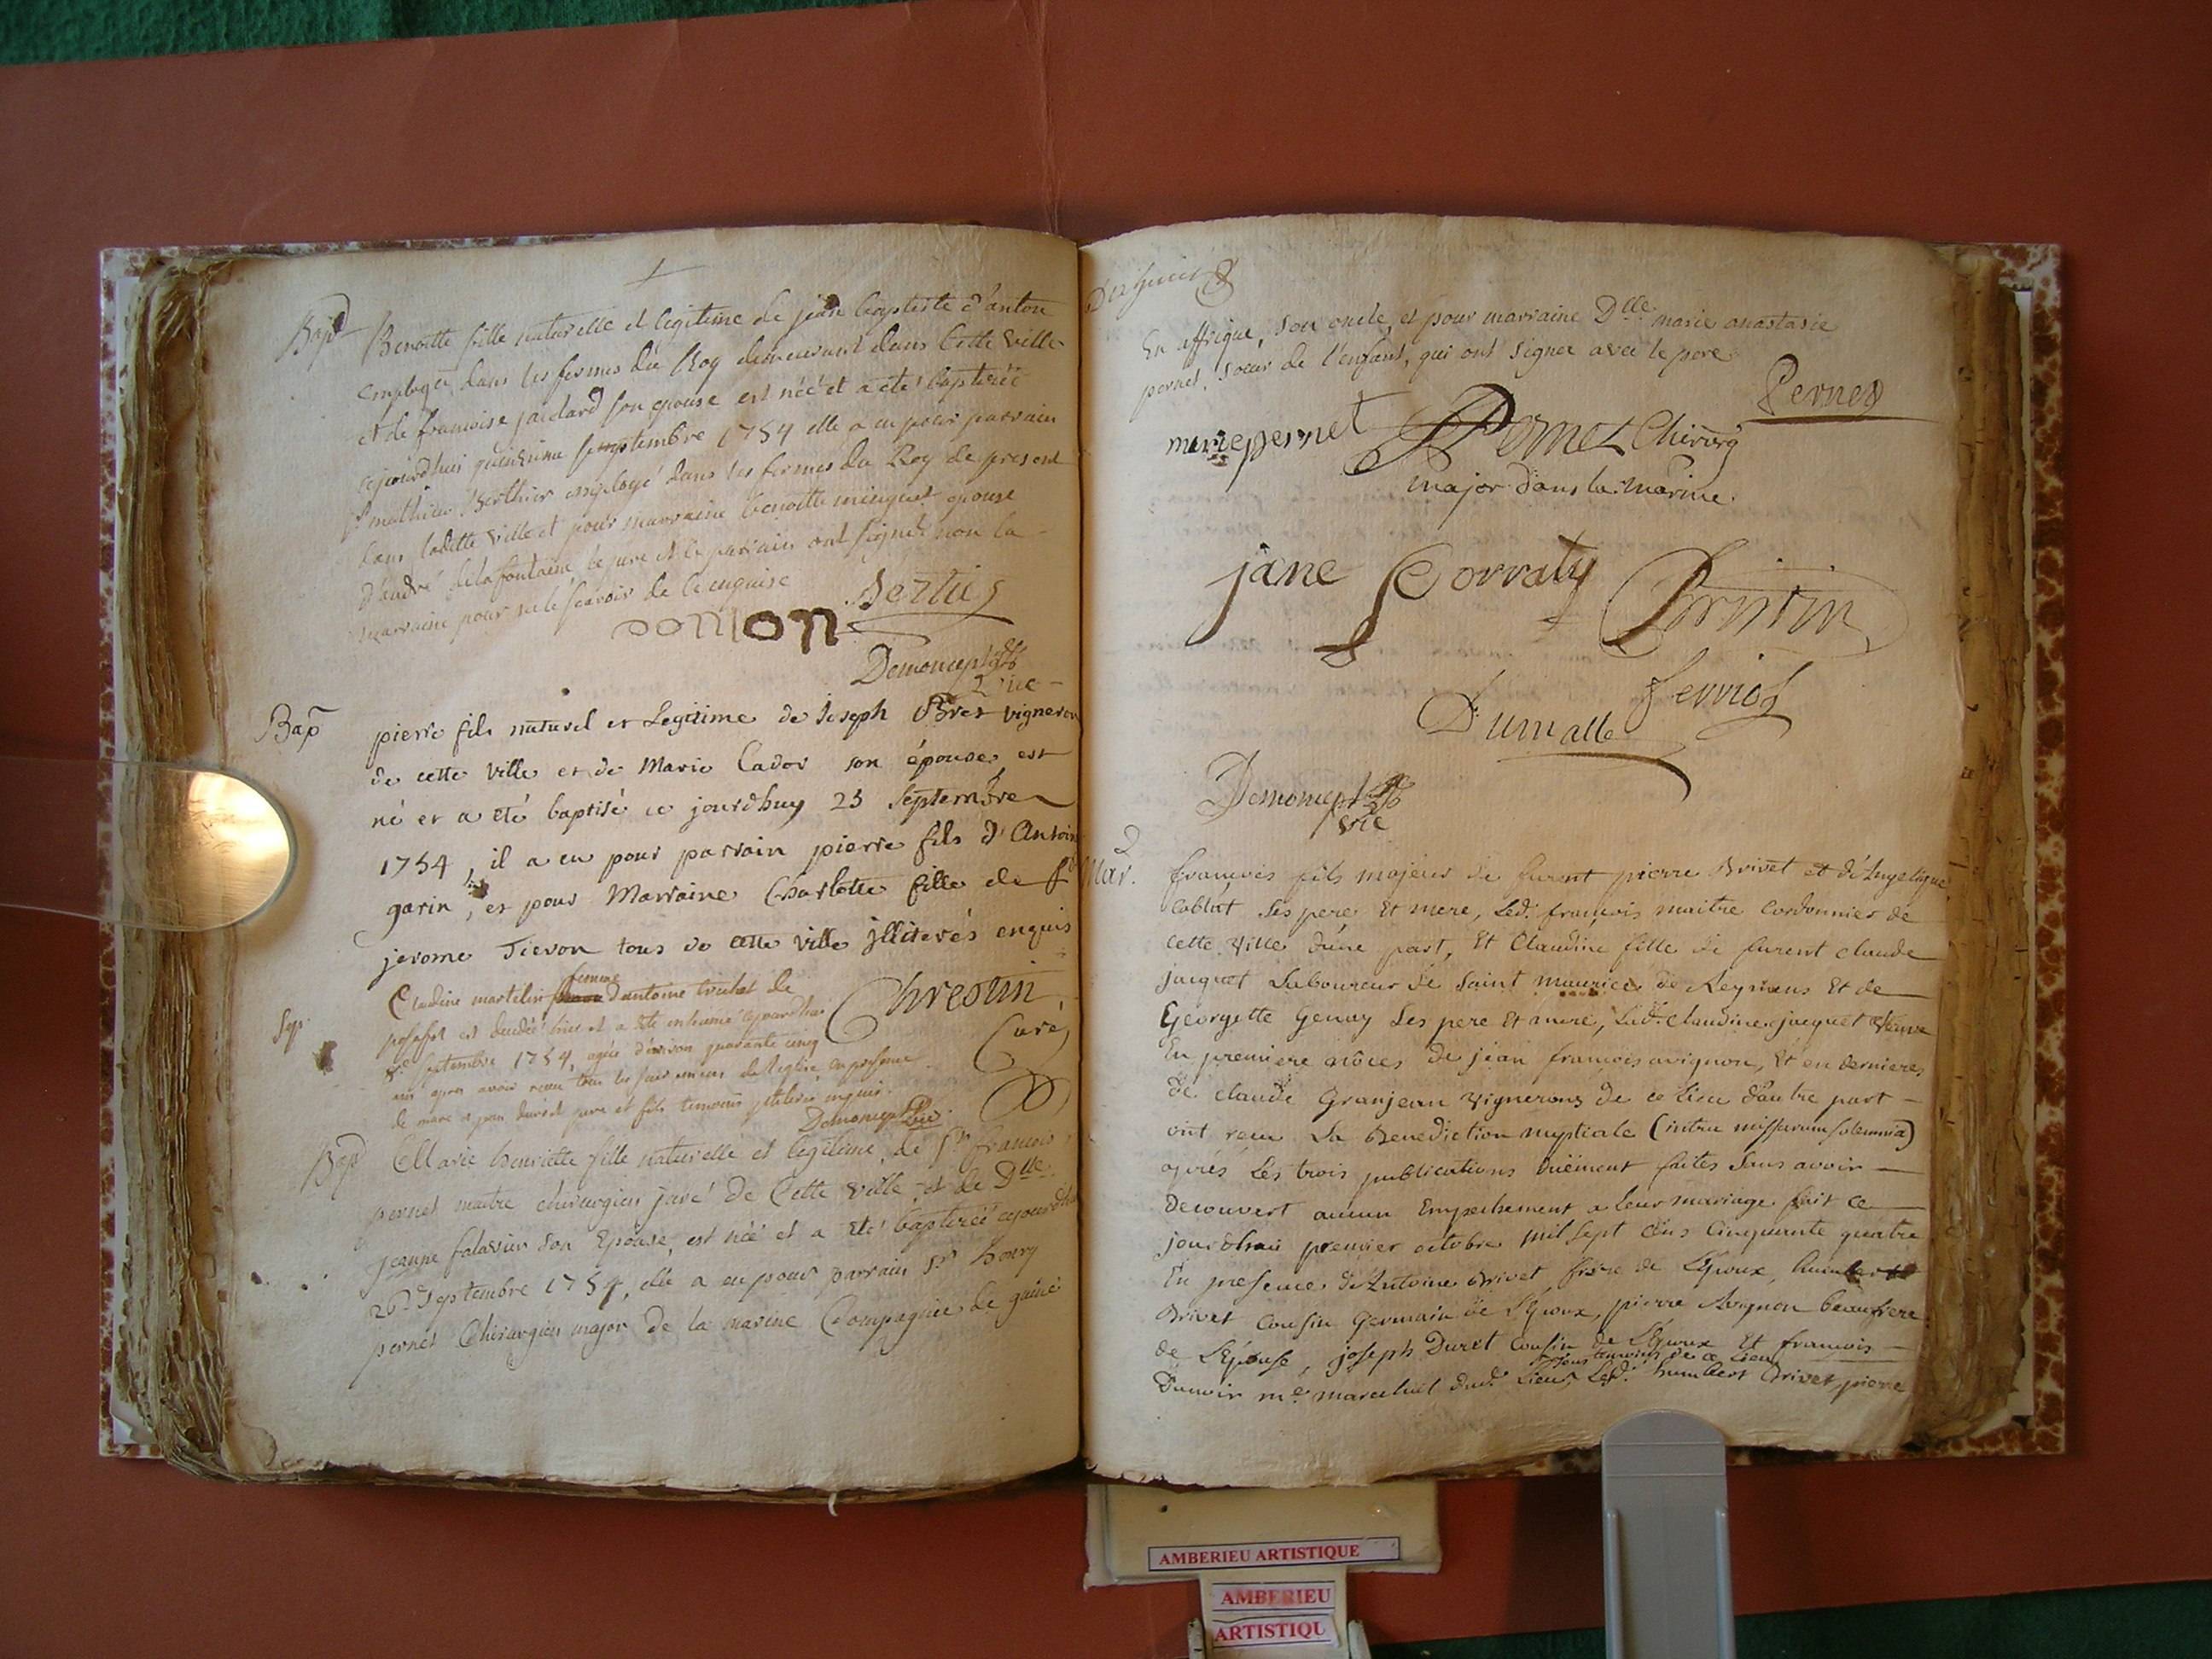 Bapt
Benoitte fille naturelle et legitime de jean baptiste d'anton
employé dans les fermes du Roy demeurant dans Cette ville
et de francoise jaidard son epouse est née et a eté baptizée
ajourdhui quinzieme septembre 1754 elle a eu pour parrain
Sr mathieu Berthier employé dans les fermes du Roy de present
dans ladite ville et pour marraine benoitte minguet epouse
d'andré delafontaine le pere et le parrain ont signé non la
marraine pour ne le scavoir de ce enquise
Bertier
Demoncept
vic
Bap
pierre fils naturel et Legitime de Joseph Bret vigneron
de cette ville et de Marie Cador son épouse, est
né et a été baptisé ce jourdhuy 23 Septembre
1754, il a eu pour parrain pierre fils d'Antoine
garin, et pour Marraine Charlotte fille de
jerome Tievon tous de cette ville jlliterés enquis
Chrestin
Curé
Sep.
Claudine martelin femme d'antoine trichet de
est decedée hier et a été inhumée ajourdhui
septembre 1754, agée d'environ quarante cinq
ans apres avoir recu tous les sacremens de l'eglise en presence
de marc et jean duret pere et fils temoins illiteres enquis.
Demoncept vic
Bapt
Marie henriette fille naturelle et legitime de Sr francois
pernet maitre chirurgien juré de Cette ville et de Dlle
jeanne falavier son Epouse, est née et a Eté baptizée ajourdhui
26e Septembre 1754, elle a eu pour parrain Sr henry
pernet Chirurgien major de la marine Compagnie de guiné
En affrique, son oncle, et pour marraine Dlle marie anastasie
pernet, soeur de l'enfant, qui ont signer avec le pere
Pernet
marie pernet Pernet Chirurg
major dans la marine.
jane Corraty Christin
Dumalle ferrio
Demoncept
vic
2
Mar.
francois fils majeur de furent pierre Brivet et d'Angelique
Cablut ses pere Et mere, Led. francois maitre Cordonnier de
cette ville d'une part, Et Claudine fille de furent claude
jacquet Laboureur de saint maurice de Reymens Et de
Georgette Genuy Ses pere Et mere, Lad. claudine jacquet Veuve
En premiere nôces de jean francois avignon, Et en dernieres
de claude Granjean vignerons de ce Lieu d'autre part
ont recu La Benediction nuptiale (intra missarum solemnia)
aprés Les trois publications duëment faites Sans avoir
decouvert aucun Empechement a leur mariage fait ce
jourdhui premier octobre mil sept cens Cinquante quatre
En presence d'Antoine Brivet frere de L'Epoux, humbert
Brivet Cousin Germain de L'Epoux, pierre Avignon beaufrere
de L'Epouse, joseph Duret Cousin de L'Epoux Et francois
tous temoins de ce Lieu
me marechal dud. Lieu, Led. humbert Brivet, pierre
AMBERIEU ARTISTIQUE
AMBERIEU
ARTISTIQU